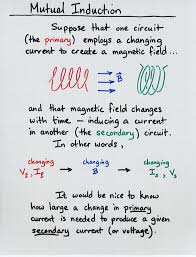 Mutual Induction
Suppose that one circuit
(the primary) employs a changing
current to create a magnetic field...
B
and that magnetic field changes
with time — inducing a current
in another (the secondary) circuit.
In other words,
changing changing changing
Vₚ, Iₚ → B → Iₛ, Vₛ
It would be nice to know
how large a change in primary
current is needed to produce a given
secondary current (or voltage).